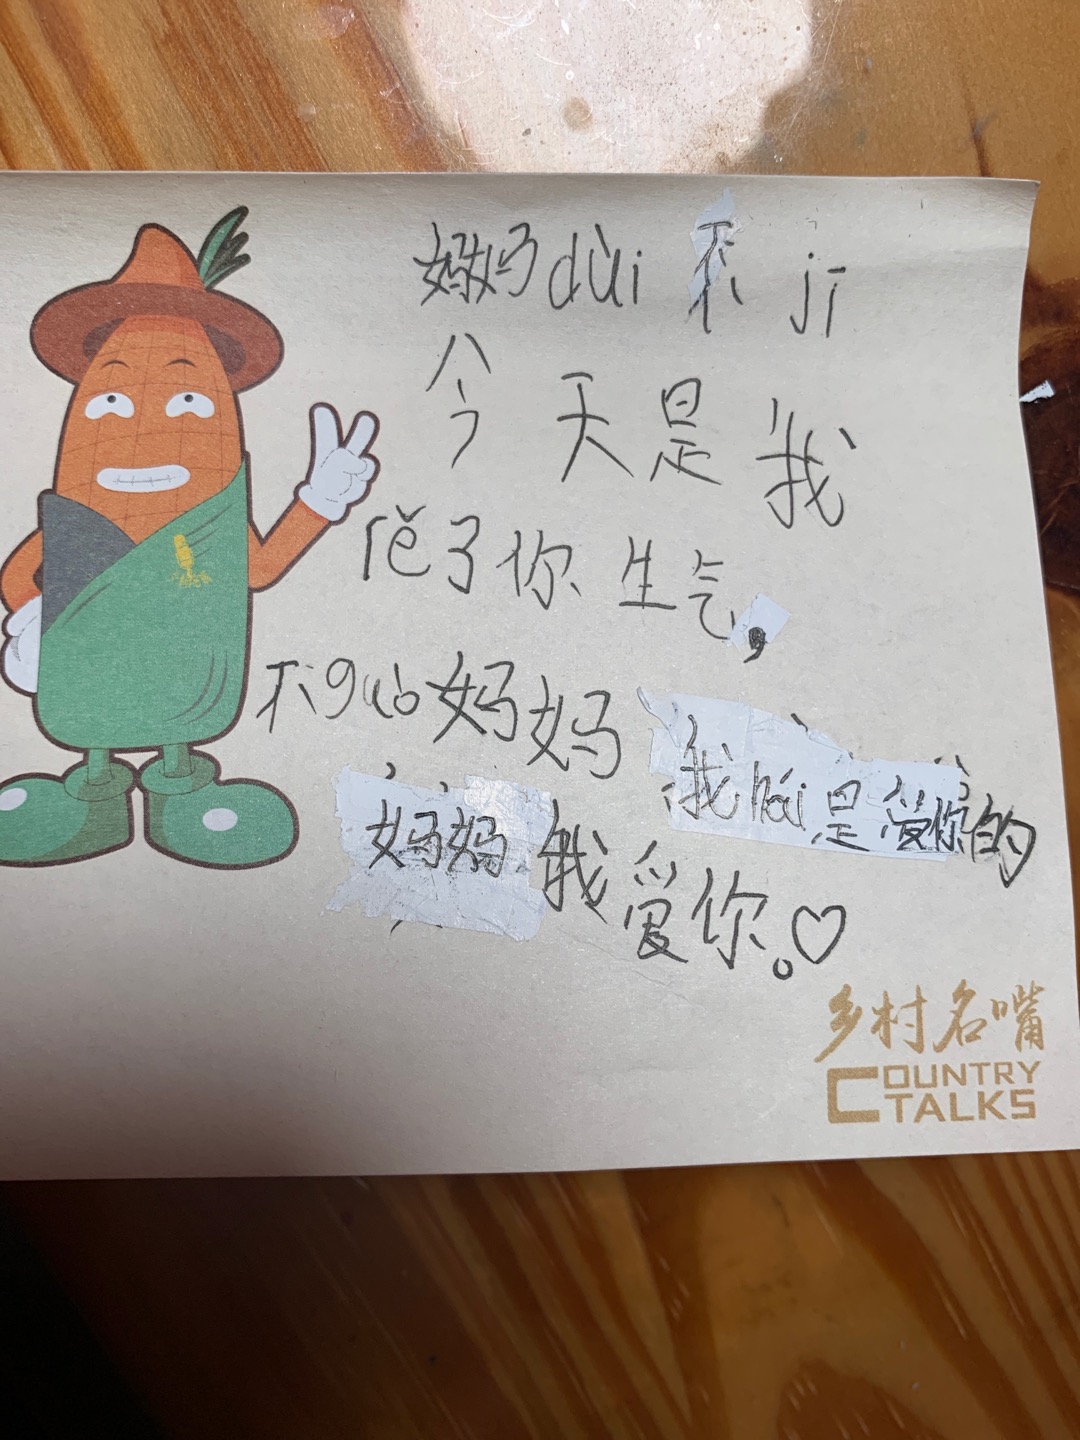 妈妈dùi不jī
今天是我
rě了你生气，
不guò妈妈我hái是爱你的
妈妈我爱你。♡
乡村名嘴
COUNTRY
TALKS